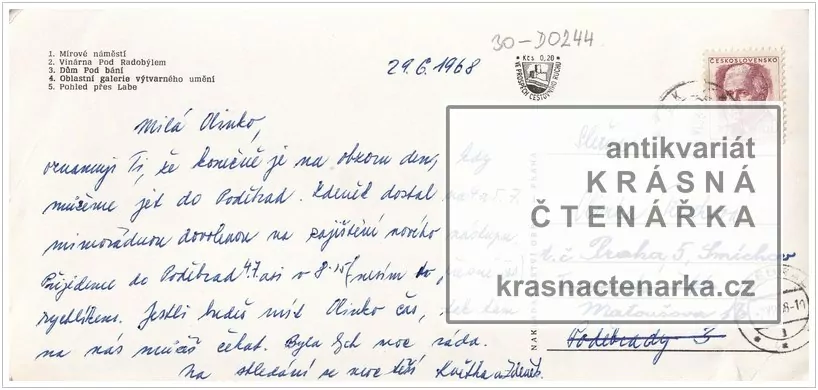 1. Mírové náměstí
2. Vinárna Pod Radobýlem
3. Dům Pod bání
4. Oblastní galerie výtvarného umění
5. Pohled přes Labe
30-D0244
29.6.1968
Kčs 0,20
VE PROSPĚCH CESTOVNÍHO RUCHU
ČESKOSLOVENSKO
Milá Olinko,
oznamuji Ti, že konečně je na obzoru den, kdy
můžeme jet do Poděbrad. Zdeněk dostal na 4 a 5.7.
mimořádnou dovolenou na zajištění nového
Přijedeme do Poděbrad 4.7. asi v 8.15 (nevím to
rychlíkem. Jestli budeš mít Olinko čas, tak
na nás můžeš čekat. Byla bych moc ráda.
Na shledání se moc těší Květka a Zdeněk.
antikvariát
KRÁSNÁ
ČTENÁŘKA
krasnactenarka.cz
t.č. Praha 5, Smíchov
Matoušova
Poděbrady